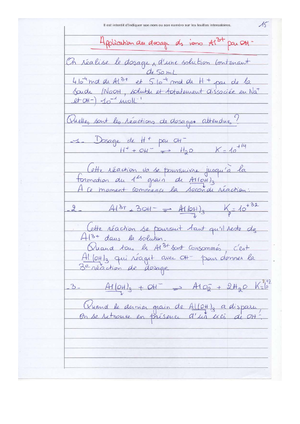 15
Application du dosage des ions Al3+ par OH-
On réalise le dosage d'une solution contenant
de 50 ml
4.10-4 mol de Al3+ et 5.10-4 mol de H+ par de la
soude (NaOH, soluté totalement dissocié en Na+
et OH-) 10-1 mol.l-1
Quelles sont les réactions de dosages attendues ?
-1- Dosage de H+ par OH-
H+ + OH- ⇌ H2O K = 10+14
Cette réaction va se poursuivre jusqu'à la
formation du 1er grain de Al(OH)3
A ce moment commence la seconde réaction :
-2- Al3+ + 3OH- ⇌ Al(OH)3 K = 10+32
Cette réaction se poursuit tant qu'il reste des
Al3+ dans la solution.
Quand tous les Al3+ sont consommés, c'est
Al(OH)3 qui réagit avec OH- pour donner la
3e réaction de dosage
-3- Al(OH)3 + OH- ⇌ AlO2- + 2H2O
Quand le dernier grain de Al(OH)3 a disparu,
On se retrouve en présence d'un excès de OH-.